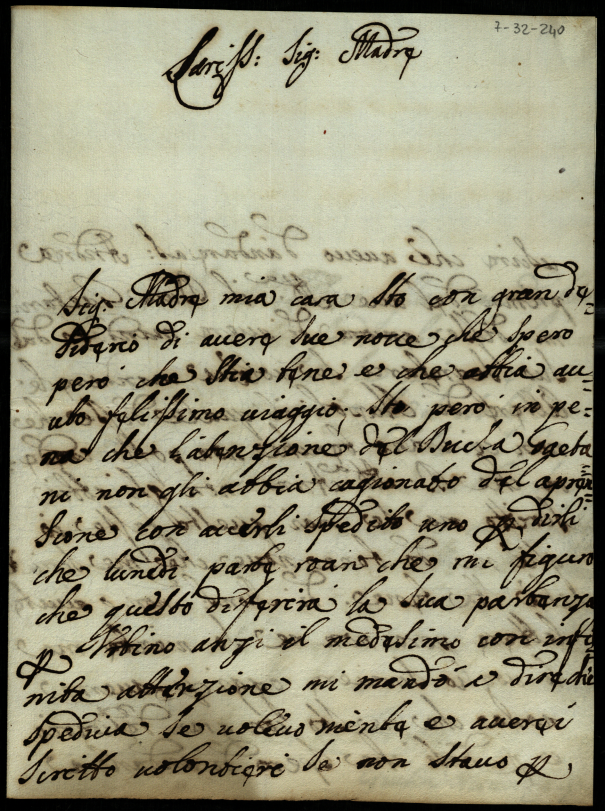 7-32-240
Cariss: Sig: Madre
Sig: Madre mia cara sto con gran de=
siderio di avere sue nove che spero
però che stia bene e che abbia au=
uto felissimo viaggio; sto però in pe=
na che l'atenzione del Gaeta
ni non gli abbia cagionato del apren
sione con averli spedito uno p dirli
che lunedi parte che mi figuro
che questo diferirà la sua partanza
p Urbino anzi il medesimo con infi
nita attenzione mi mandò a dire che
spediva se volevo niente e averei
scritto volontieri se non stavo p